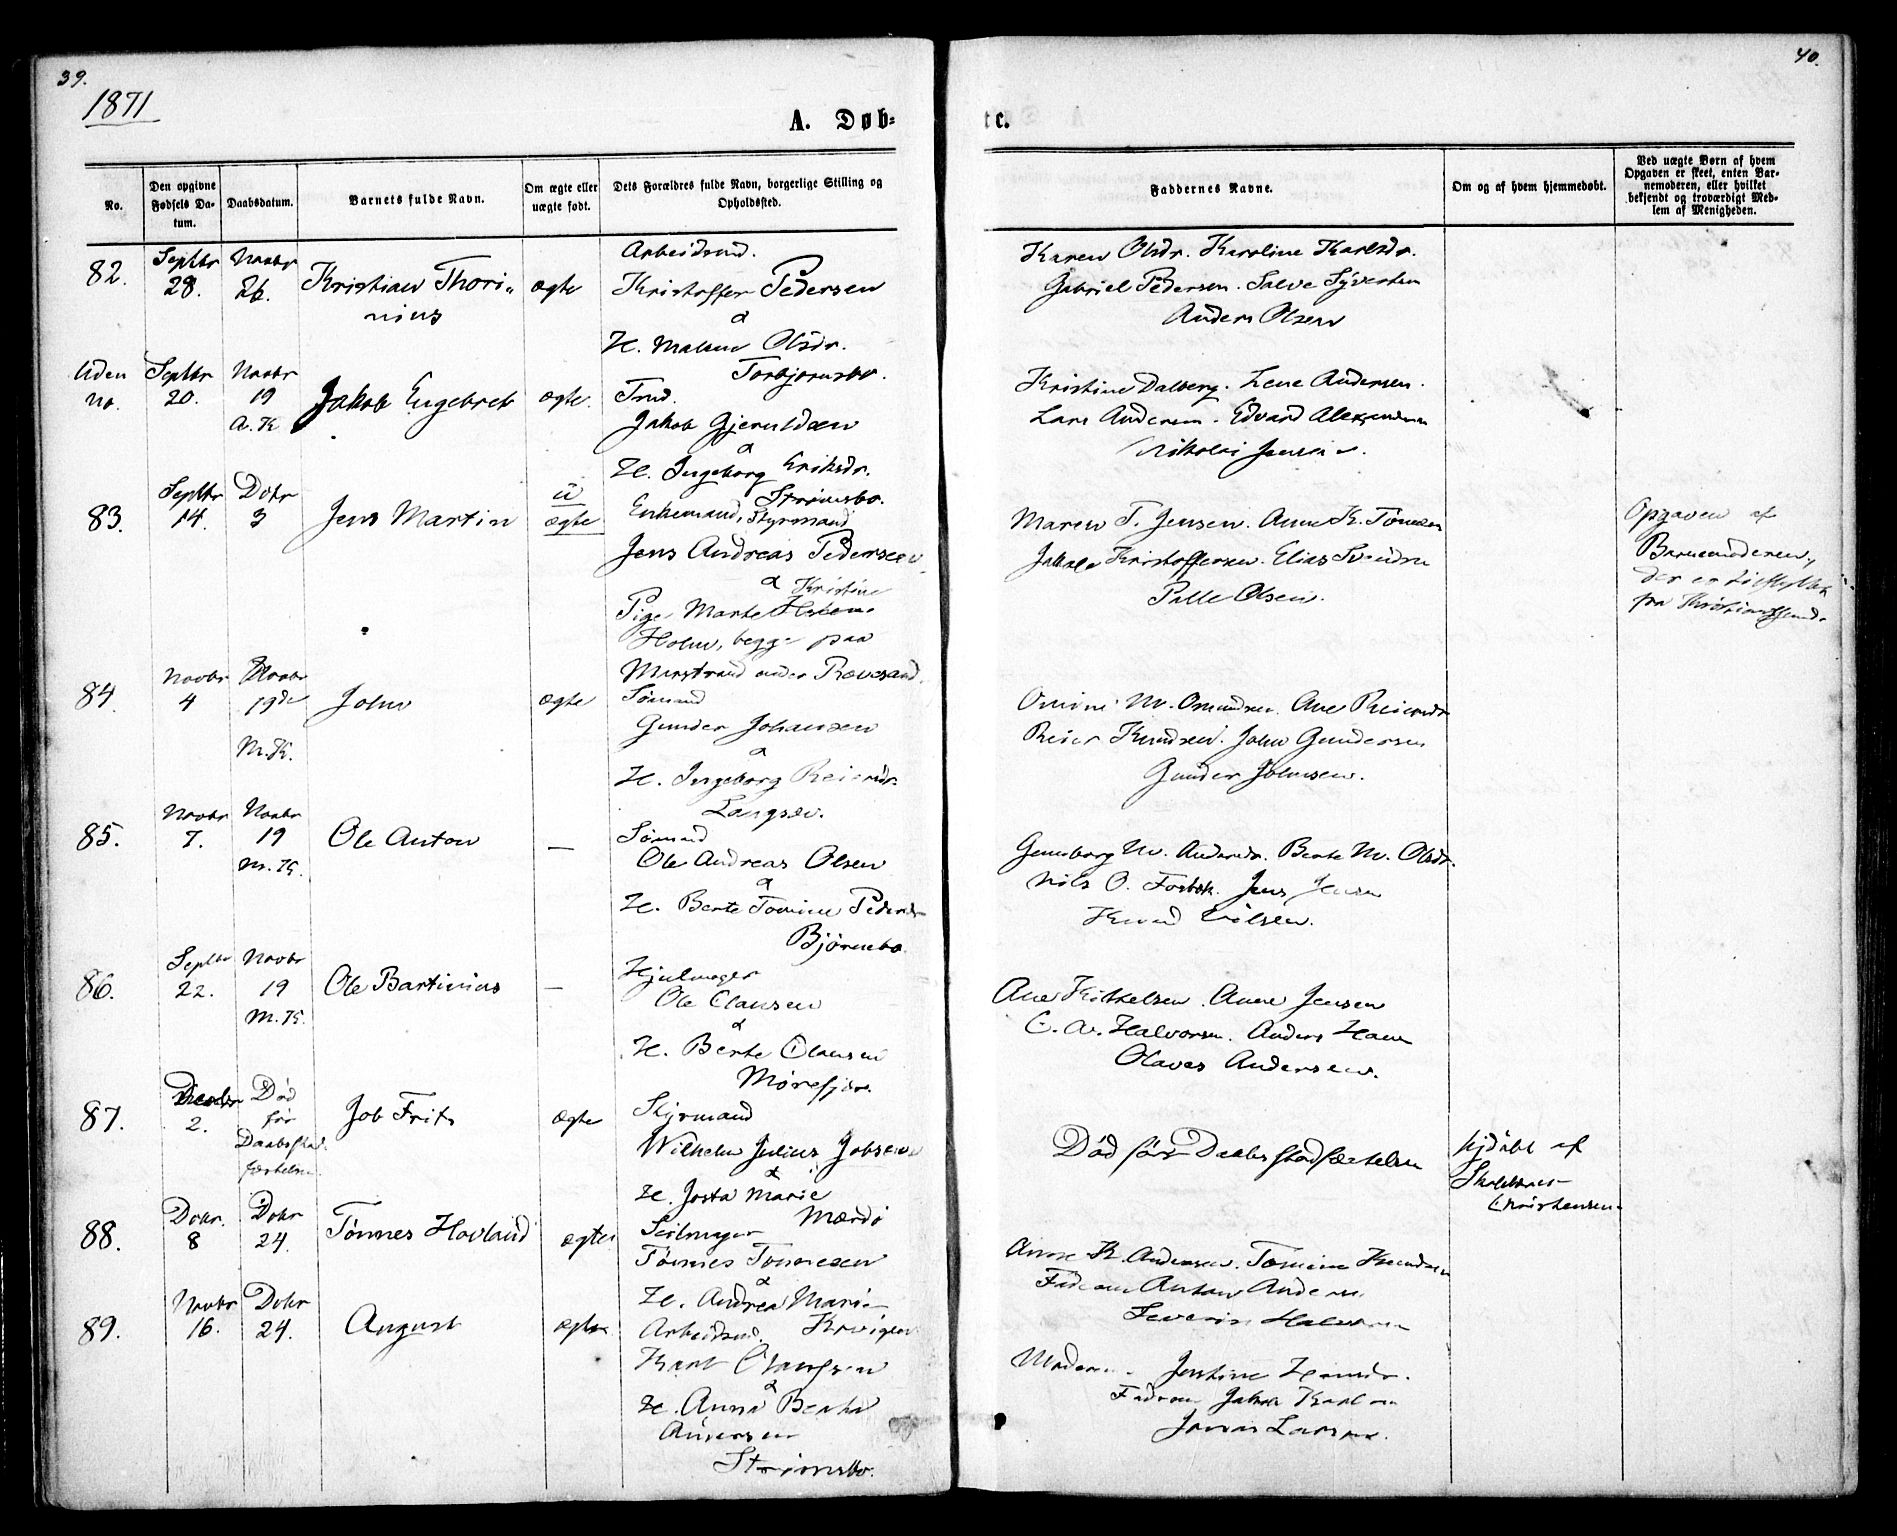 39.
40.
1871
A. Døb-
te.
No.
Den opgivne Fødsels Datum.
Daabsdatum.
Barnets fulde Navn.
Om ægte eller uægte født.
Dets Forældres fulde Navn, borgerlige Stilling og Opholdssted.
Faddernes Navne.
Om og af hvem hjemmedøbt.
Ved uægte Børn af hvem Opgaven er skeet, enten Barnemoderen, eller hvilket bekjendt og troværdigt Medlem af Menigheden.
82.
Septbr 28.
Novbr 26.
Kristian Thori„
nius
ægte
Arbeidsmd.
Kristoffer Pedersen
&
H. Malene Olsdr.
Torbjørnsbo.
Karen Olsdr. Karoline Karlsdr.
Gabriel Pedersen. Salve Syvertsen
Anders Olsen
Uden no.
Septbr 20.
Novbr 19
A. K
Jakob Engebret
ægte.
Tmd.
Jakob Gjeruldsen
&
H. Ingeborg Eriksdr.
Strømsbo.
Kristine Dalberg. Lene Andersen.
Lars Andersen. Edvard
Nikolai Jensen.
83.
Septbr 14.
Dcbr 3
Jens Martin
u
ægte
Enkemand, Styrmand
Jens Andreas Pedersen
& Kristine
Pige Marte
Holm, begge paa
under Revesand.
Maren T. Jensen. Anne K. Tønnesen
Jakob Kristoffersen. Elias
Palle Olsen.
Opgaven af
Barnemoderen,
der er tilflyttet
fra Kristianssund.
84.
Novbr 4
Novbr 19de
M. K.
John
ægte
Sømand
Gunder Johansen
&
H. Ingeborg Reiersdr.
Langsæv.
M. Omundsen. Ane Reiersdr
Reier Knudsen. John Gundersen
Gunder Johnsen.
85.
Novbr 7.
Novbr 19
M. K.
Ole Anton
—
Sømand
Ole Andreas Olsen
&
H. Berte Tomine Pedersdr
Bjørnebo.
Gunborg M. Andersdr. Berte M. Olsdr.
Nils O. Jens Jensen
Knud Nilsen.
86.
Septbr 22.
Novbr 19
M. K.
Ole Bartinius
—
Hjulmager
Ole Clausen
&
H. Berte Clausen
Mørefjær.
Ane Kittelsen. Anne Jensen
C. A. Halvorsen. Anders
Olaves Andersen.
87.
2.
Død
før
Daabsstad-
fæstelsen.
Job Frits
ægte
Styrmand
Wilhelm Julius Jobsen
&
H. Josta Marie
Mærdø
Død før Daabsstadfæstelsen
hjdøbt af
Skoleholder
Christensen.
88.
Dcbr. 8
Dcbr 24.
Tønnes Hovland
ægte
Seilmager
Tønnes Tønnesen
&
H. Andrea Marie
Anne K. Andersen. Tomine Knudsen
Faderen Anton Andersen
Severin Halvorsen
89.
Novbr 16.
Dcbr 24.
August
ægte
Arbeidsmd.
Karl
&
H. Anna Berthe
Andersen
Strømsbo.
Moderen. Justine Hansdr.
Faderen Jakob Karlsen
Jonas Larsen.